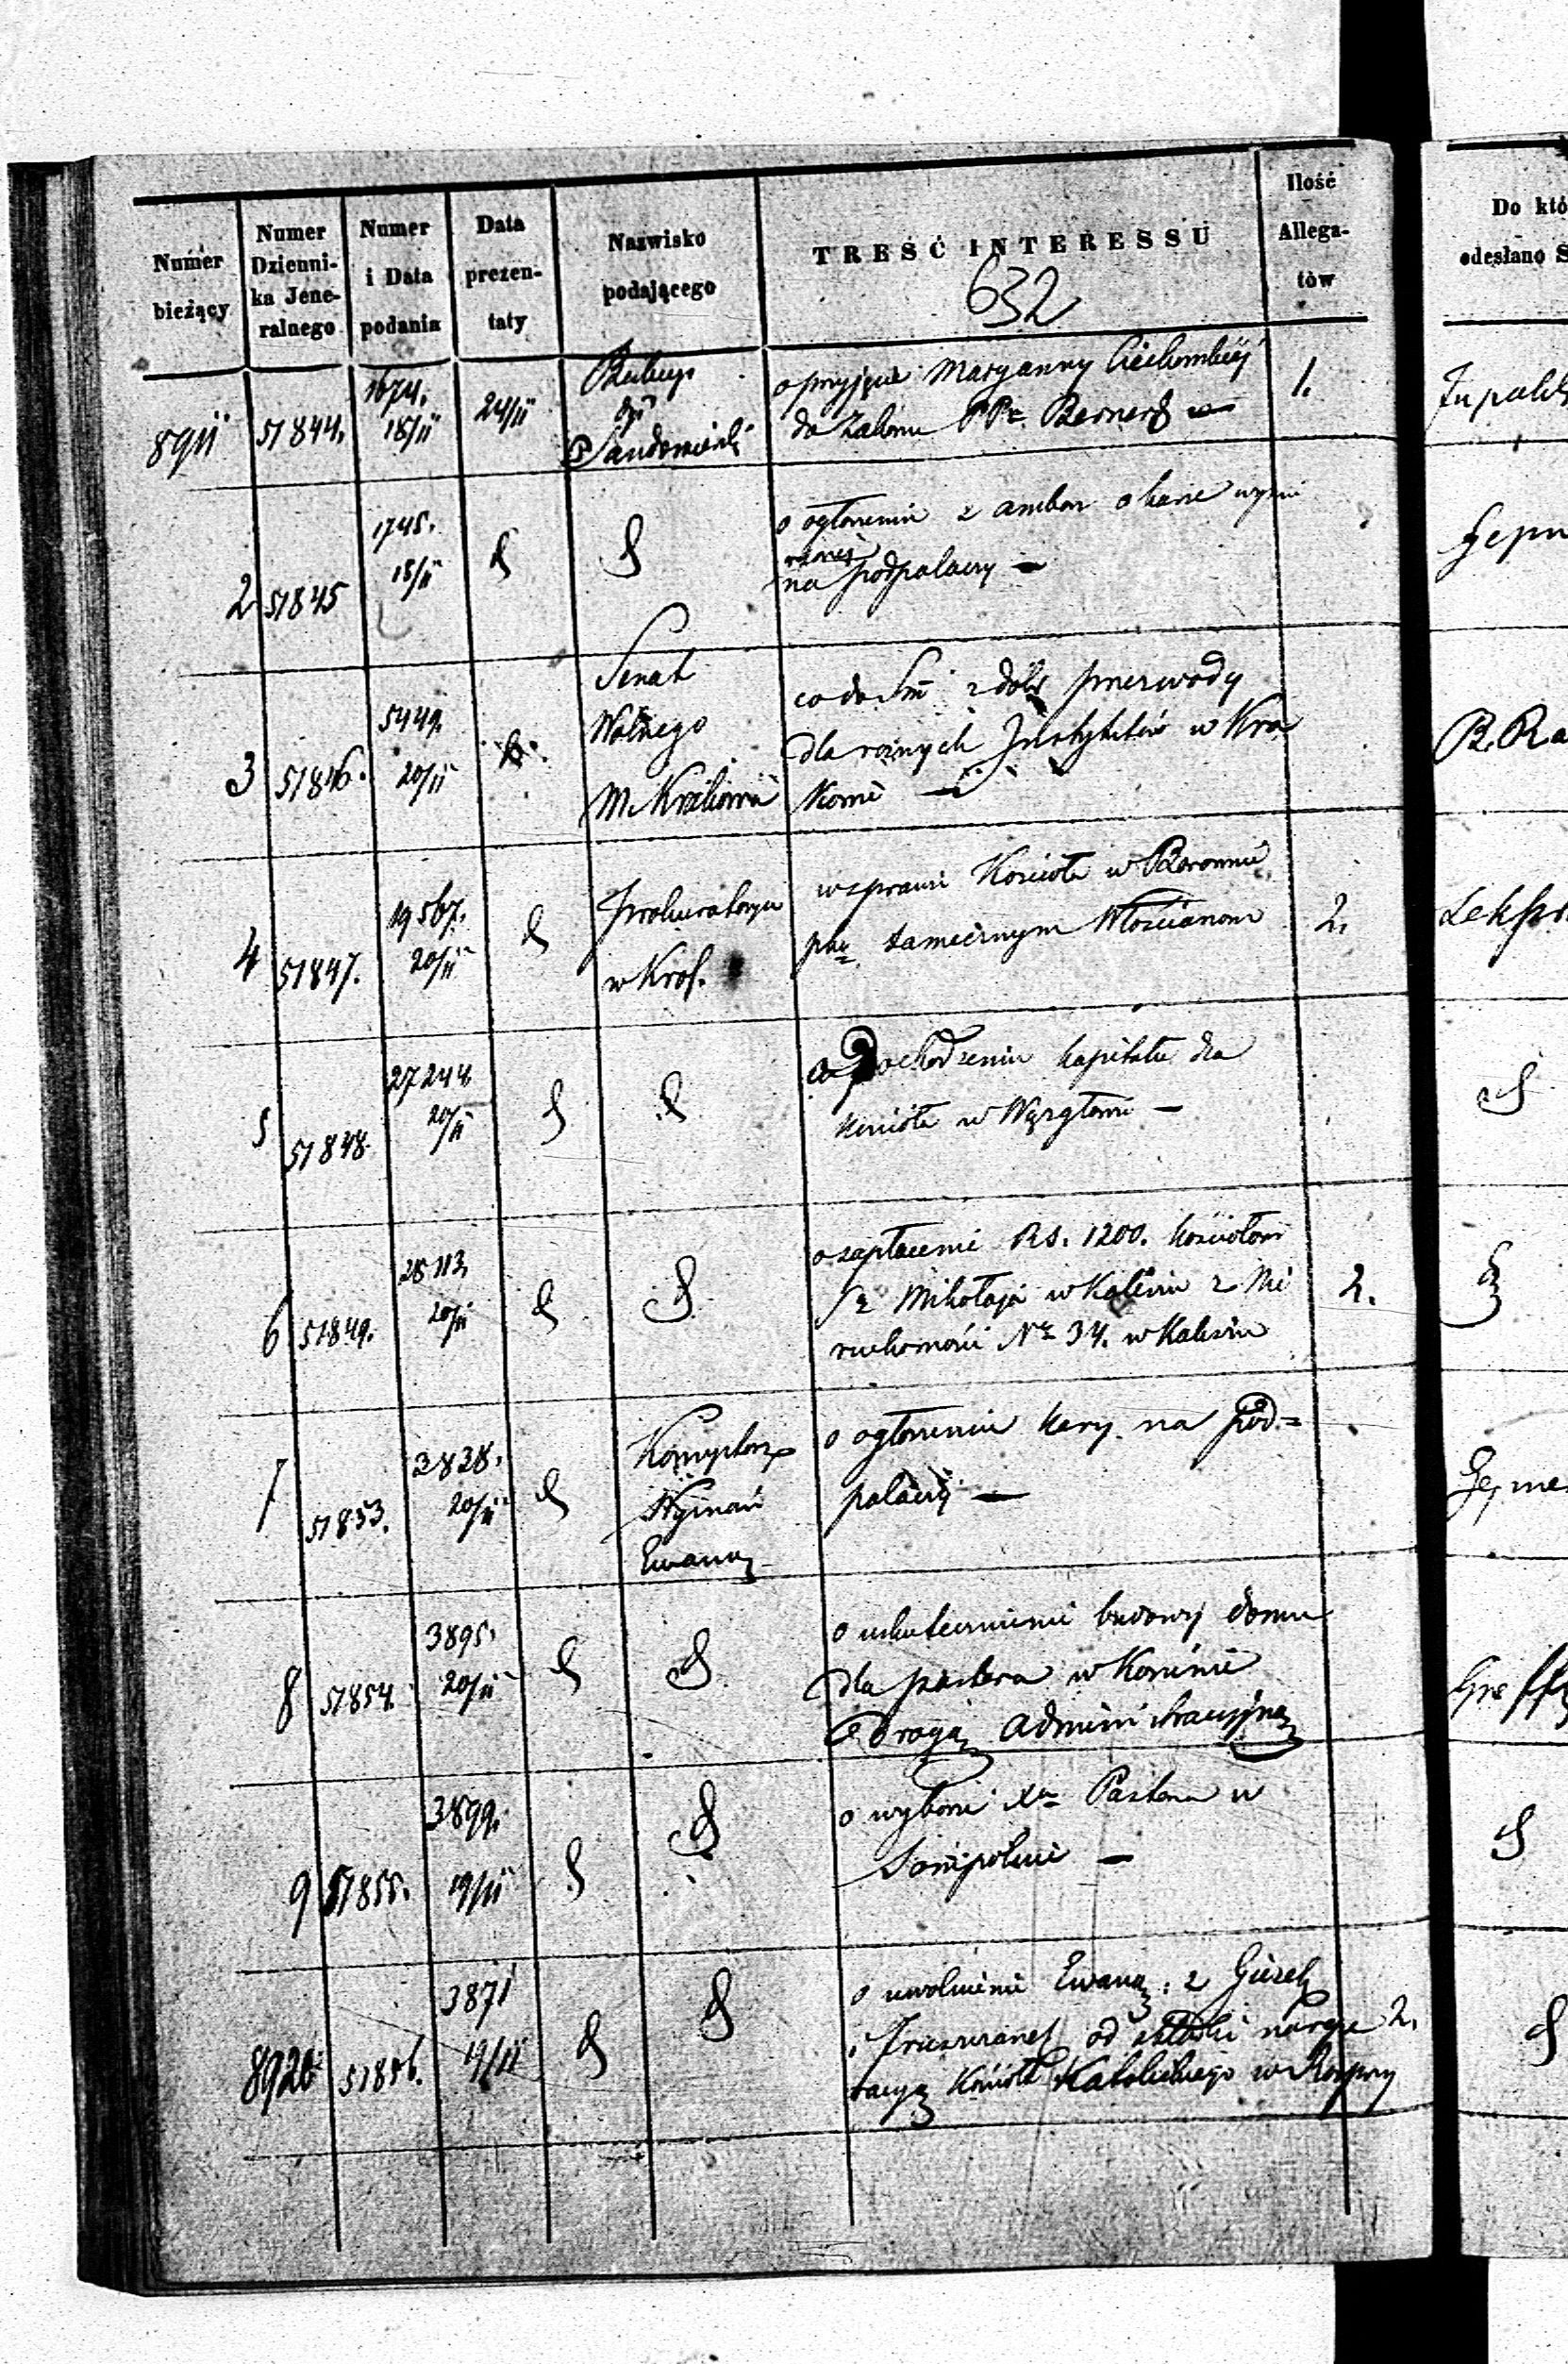 Numer bieżący
Numer Dzienni-
ka Jene-
ralnego
Numer i Data podania
Data prezen-
taty
Nazwisko podającego
TREŚĆ INTERESSU
632
Ilość Allega-
tów
Do któ
odesłano S
8911 51844. 1674. 18/11 24/11
Sandomierski
o przyjęcie Maryanny
do Zakonu PP. Bernard
1.
2 51845 1745. 18/11 d d
o ogłoszenie z ambon o karze wymie
rzonej
na podpalaczy —
3 51846. 5449. 20/11 d.
Senat
Wolnego
M. Krakowa
co do Sum z dóbr przerwody
dla rożnych Instytutów w Kra
kowie —
4 51847. 19567. 20/11 d
Prokuratorya
w Król.
w sprawie Kościoła w Boronnie
pko tamecznym Włościanom
2.
5 51848. 27244. 20/11 d d
co pochodzenia kapitału dla
kościoła w
d
6 51849. 28113. 20/11 d d
o zapłacenie RS. 1200. kościołowi
Sgo Mikołaja w Kaliszu z Nie
ruchomości Nro 34. w Kaliszu
2.
d
7 51853. 3828. 20/11 d
Konsystorz
Wyznań
Ewang.
o ogłoszenie kary na pod-
palaczy —
8 51854. 3895. 20/11 d d
o uskutecznienie budowy domu
dla pastora w Koninie
drogą administracyjną
9 51855. 3899. 19/11 d d
o wyborze Xa Pastora w
Sompolnie —
d
8920 51856. 3871 19/11 d d
o uwolnienie Ewang: z
i od składki na repa
racyą Kościoła Katolickiego w Rozprzy
2.
d